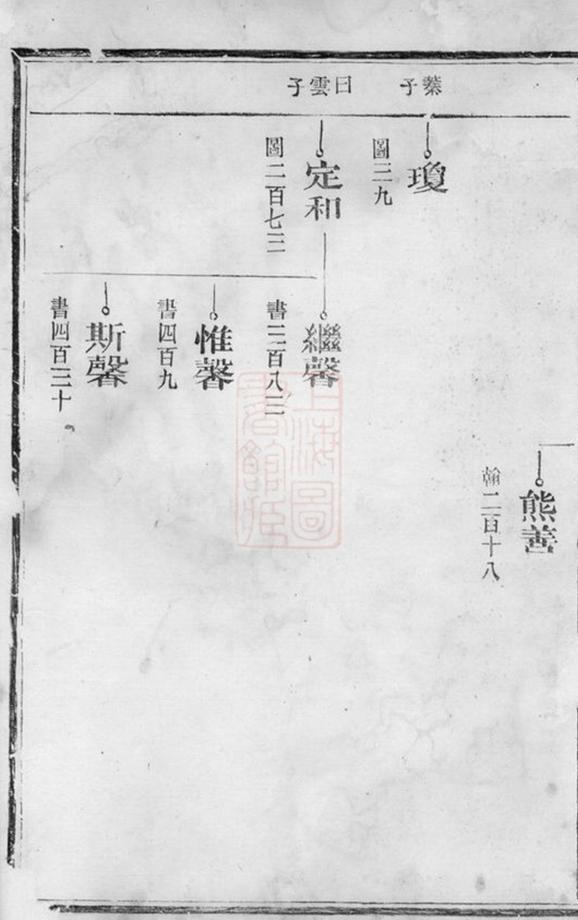 子
曰雲子
熊善
翰二百十八
瓊
圖三九
定和
圖二百七三
繼馨
書三百八三
惟馨
書四百九
斯馨
書四百三十
上海圖書館藏